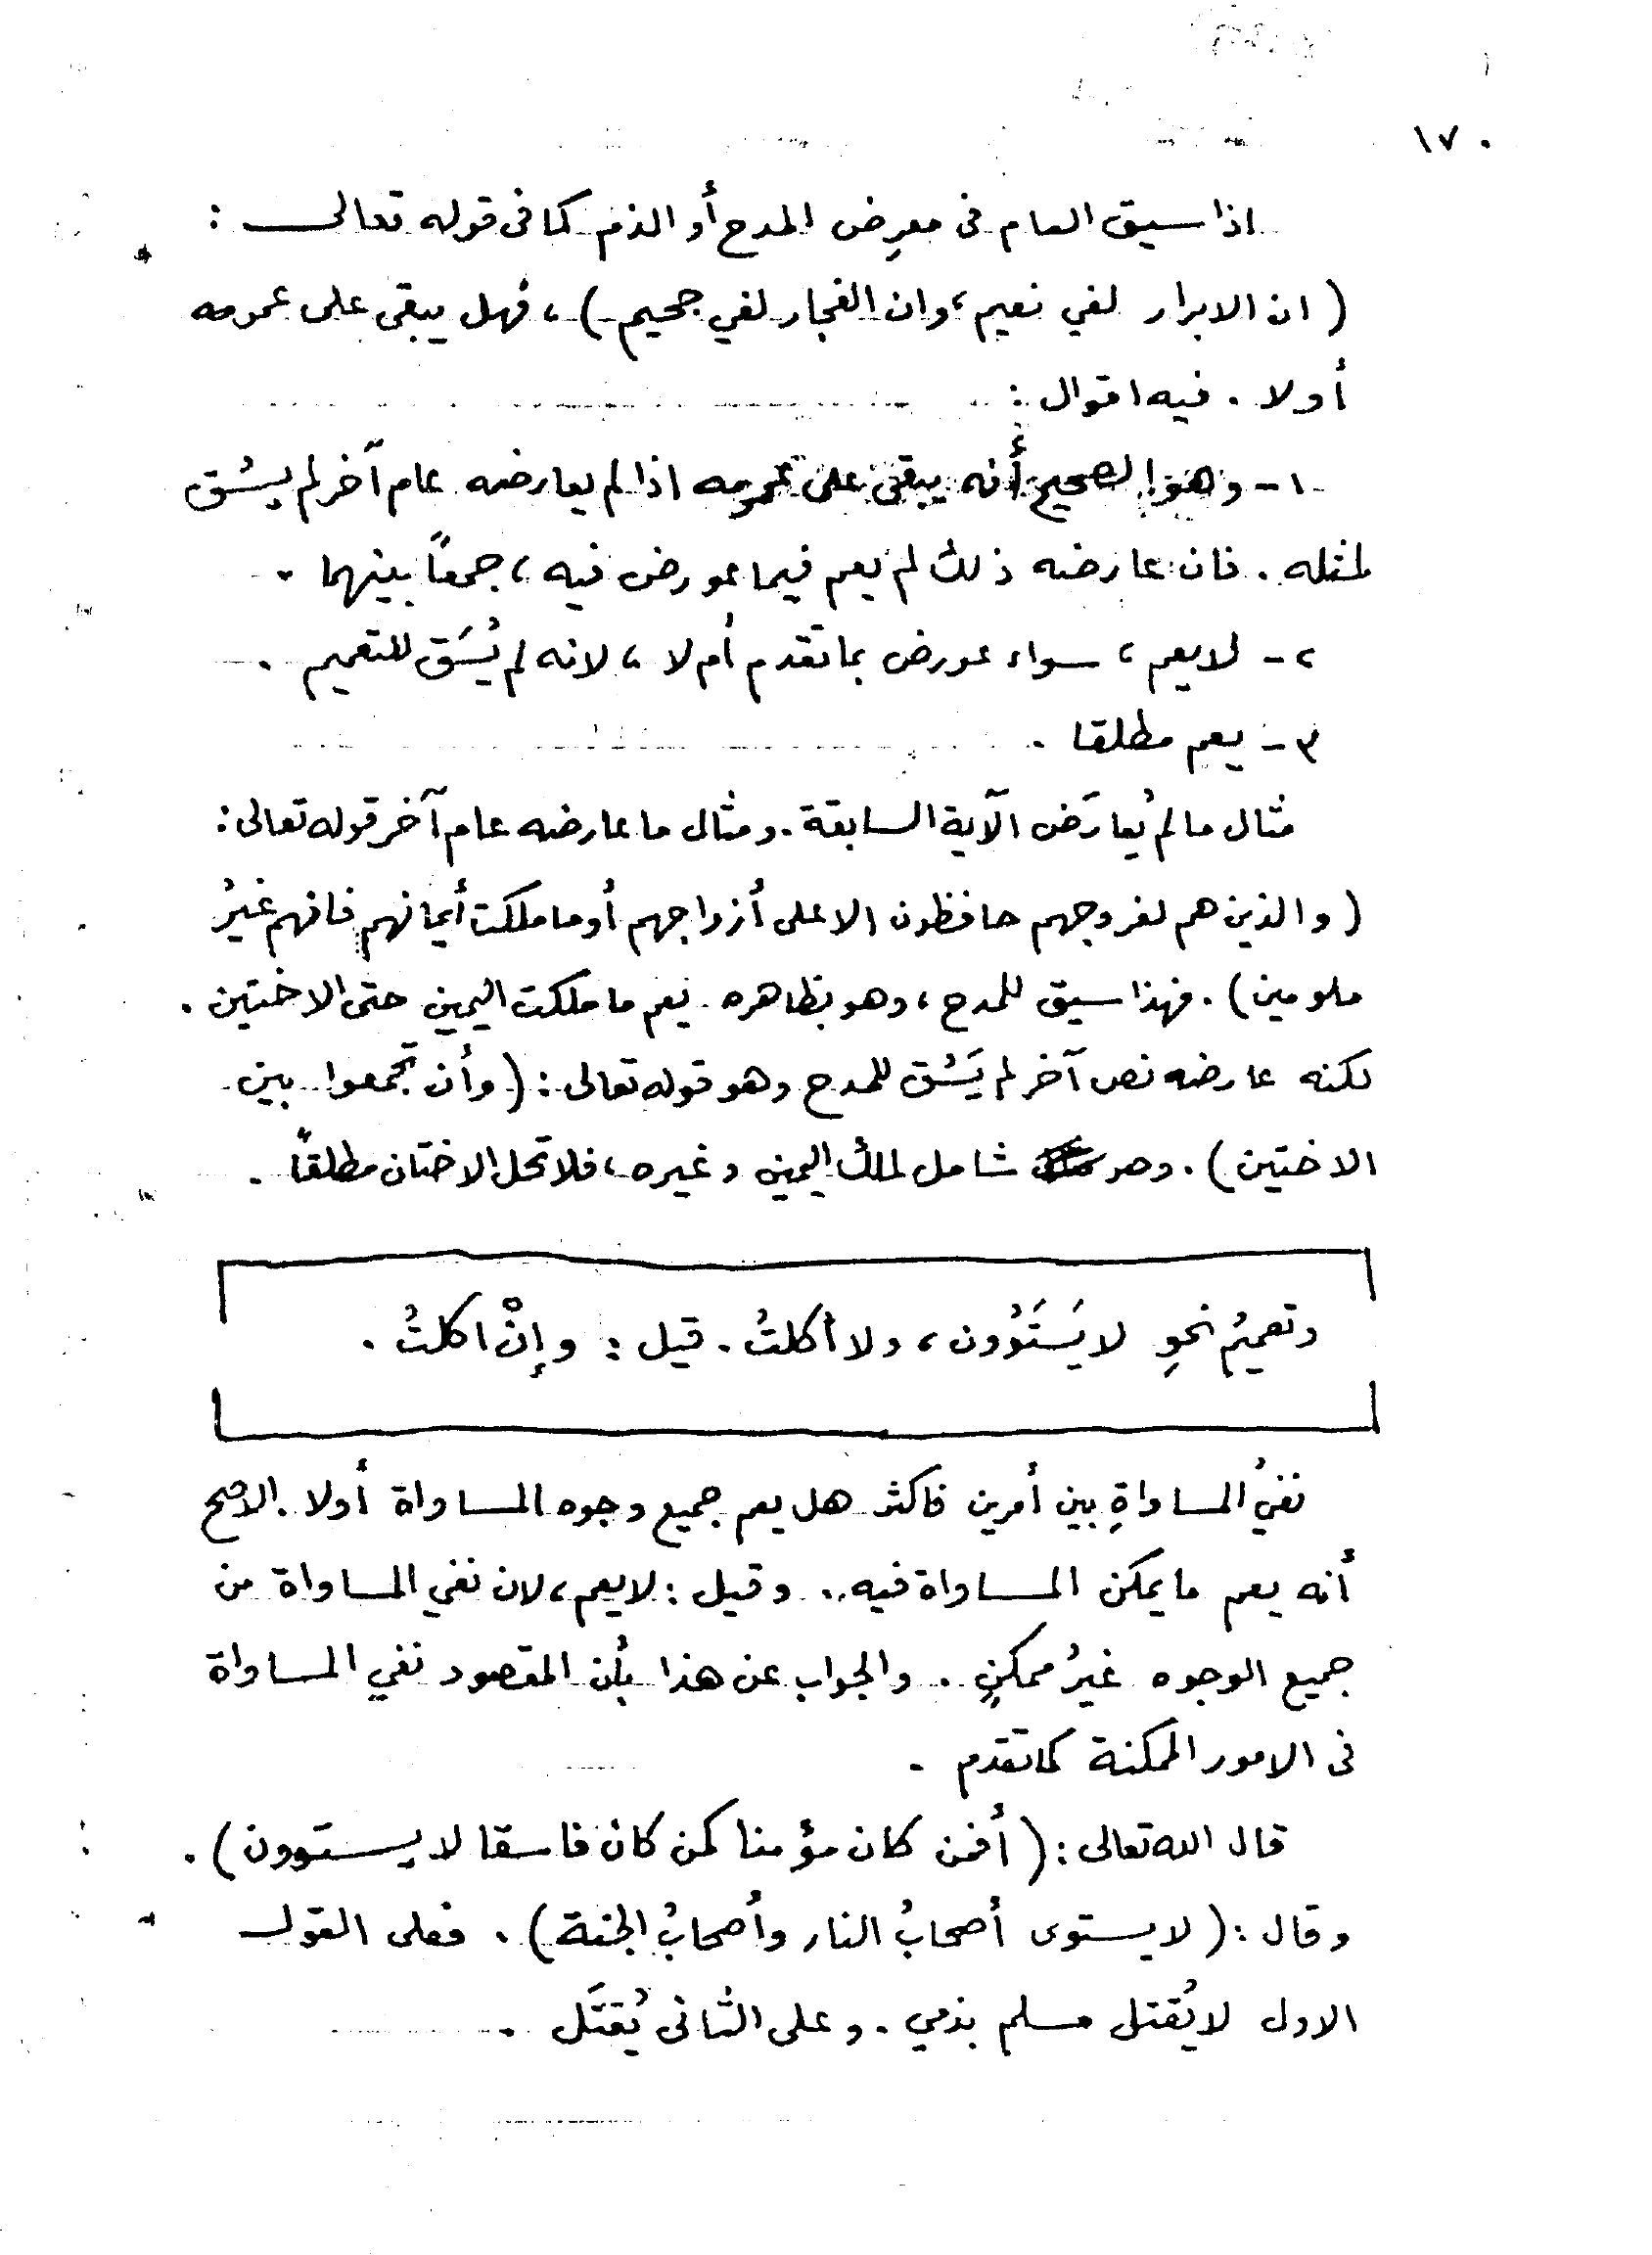 ١٧٠
اذا سيق العام فى معرِض المدح أو الذم كما فى قوله تعالى :
( ان الابرار لفي نعيم ، وان الفجار لفي جحيم ) ، فهل يبقى على عمومه
أولا . فيه اقوال :
١ - وهو الصحيح أنه يبقى على عمومه اذا لم يعارضه عام آخر لم يسُق
لمثله . فان عارضه ذلك لم يعم فيما عورض فيه ، جمعاً بينهما .
٢ - لا يعم ، سواء عورض بما تقدم أم لا ، لانه لم يُسَق للتعميم .
٣ - يعم مطلقا .
مثال ما لم يُعارَض الآية السابقة . ومثال ما عارضه عام آخر قوله تعالى :
( والذين هم لفروجهم حافظون الا على أزواجهم أو ما ملكت أيمانهم فانهم غيرُ
ملومين ) . فهذا سيق للمدح ، وهو بظاهره يعم ما ملكت اليمين حتى الاختين .
لكنه عارضه نص آخر لم يَسُق للمدح وهو قوله تعالى : ( وأن تجمعوا بين
الاختين ) . وهو شامل لملك اليمين وغيره ، فلا تحل الاختان مطلقاً .
وتعميمُ نحوِ لا يَستَوُون ، ولا أكلتُ . قيل : وإنْ اكلتُ .
نفيُ المساواةِ بين أمرين فاكثر هل يعم جميع وجوه المساواة أولا . الاصح
أنه يعم ما يمكن المساواة فيه .. وقيل : لا يعم ، لان نفي المساواة من
جميع الوجوه غيرُ ممكنٍ . والجواب عن هذا بأن المقصود نفي المساواة
فى الامور الممكنة كما تقدم .
قال الله تعالى : ( أفمن كان مؤمنا كمن كان فاسقا لا يستوون ) .
وقال : ( لا يستوى أصحابُ النار وأصحابُ الجنة ) . فعلى القول
الاول لا يُقتل مسلم بذمي . وعلى الثانى يُقتَل .